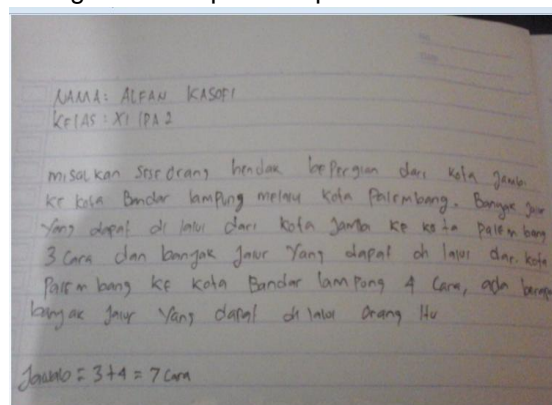 NAMA: ALFAN KASOFI
KELAS: XI IPA 2
misalkan seseorang hendak bepergian dari kota Jambi
ke kota Bandar lampung melalui kota Palembang. Banyak jalur
Yang dapat di lalui dari kota Jambi ke kota Palembang
3 Cara dan banyak Jalur Yang dapat di lalui dari kota
Palembang ke kota Bandar lampung 4 Cara, ada berapa
banyak Jalur Yang dapat di lalui orang itu
Jawab = 3+4 = 7 Cara